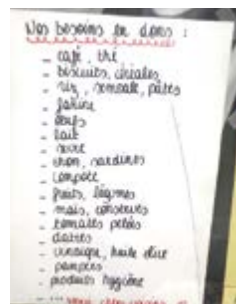 Nos besoins en dons :
- café, thé
- biscuits, céréales
- riz, semoule, pâtes
- farine
- œufs
- lait
- sucre
- thon, sardines
- compote
- fruits, légumes
- maïs, conserves
- tomates pelées
- dattes
- vinaigre, huile d'olive
- pampers
- produits hygiène